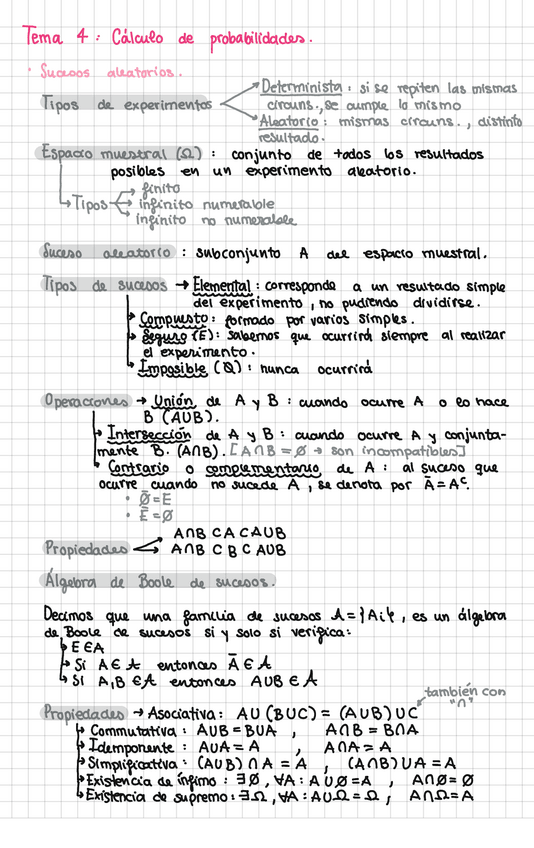 Tema 4 : Cálculo de probabilidades.
· Sucesos aleatorios.
Determinista : si se repiten las mismas
Tipos de experimentos
circuns., se cumple lo mismo
Aleatorio : mismas circuns. , distinto
resultado.
Espacio muestral (Ω) : conjunto de todos los resultados
posibles en un experimento aleatorio.
finito
Tipos infinito numerable
infinito no numerable
Suceso aleatorio : subconjunto A del espacio muestral.
Tipos de sucesos → Elemental : corresponde a un resultado simple
del experimento , no pudiendo dividirse.
Compuesto : formado por varios simples.
Seguro (E) : Sabemos que ocurrirá siempre al realizar
el experimento.
Imposible (∅) : nunca ocurrirá
Operaciones → Unión de A y B : cuando ocurre A o lo hace
B (AUB).
Intersección de A y B : cuando ocurre A y conjunta-
mente B. (A∩B). [A∩B = ∅ → son incompatibles]
Contrario o complementario de A : al suceso que
ocurre cuando no sucede A , se denota por Ā = Aᶜ.
• ∅̄ = E
• Ē = ∅
A∩B ⊂ A ⊂ AUB
Propiedades A∩B ⊂ B ⊂ AUB
Álgebra de Boole de sucesos.
Decimos que una familia de sucesos A = {Ai} , es un álgebra
de Boole de sucesos si y solo si verifica :
E ∈ A
Si A ∈ A entonces Ā ∈ A
Si A,B ∈ A entonces AUB ∈ A
también con
"∩"
Propiedades → Asociativa : AU (BUC) = (AUB) UC
Commutativa : AUB = BUA , A∩B = B∩A
Idemponente : AUA = A , A∩A = A
Simplificativa : (AUB) ∩ A = A , (A∩B) UA = A
Existencia de ínfimo : ∃∅ , ∀A : AU∅ = A , A∩∅ = ∅
Existencia de supremo : ∃Ω , ∀A : AUΩ = Ω , A∩Ω = A